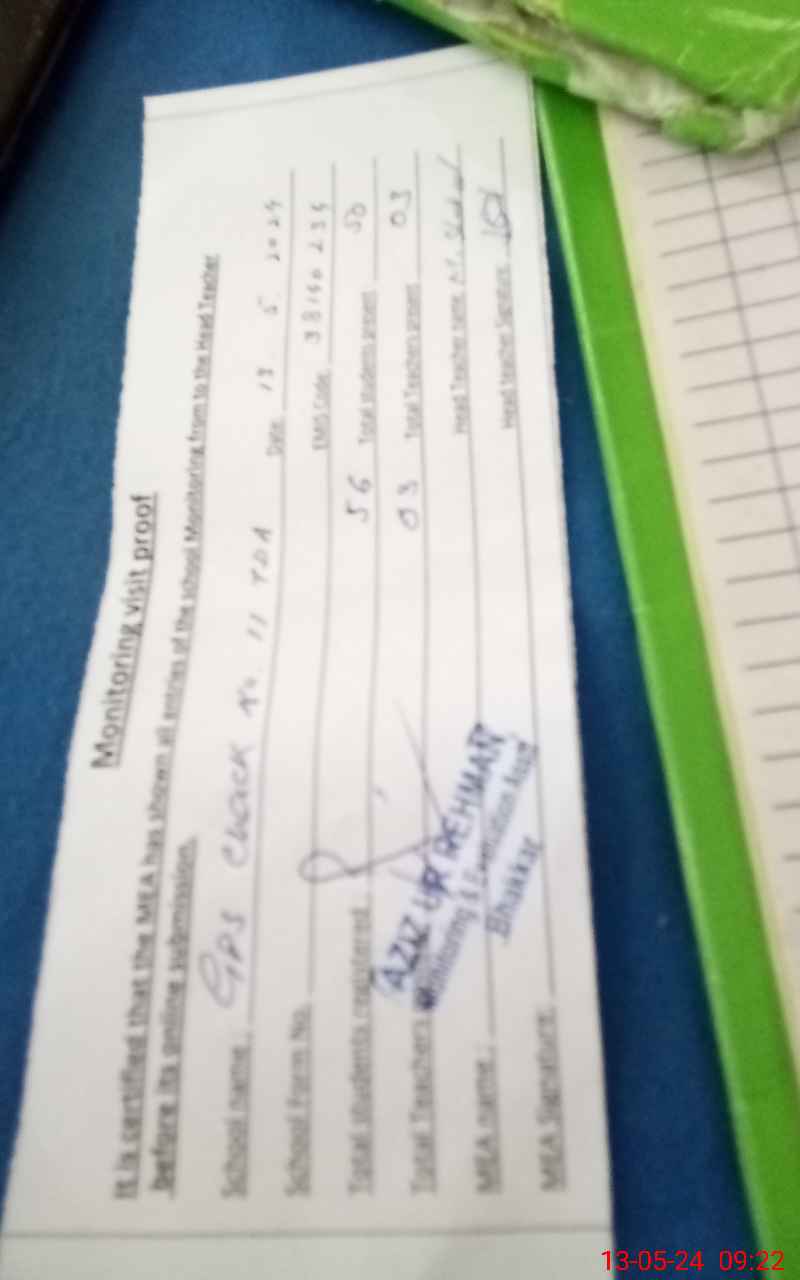 Monitoring visit proof
It is certified that the MEA has shown all entries of the school Monitoring from to the Head Teacher
before its online submission.
School name : GPS Chack No. 11 TDA Date: 13 5 2024
School Form No. EMIS Code: 38140 234
Total students registered 56 Total students present 50
Total Teachers 03 Total Teachers present 03
MEA name : Head Teacher name: M.
MEA Signature: Head teacher Signature:
AZIZ UR REHMAN
Monitoring & Evaluation Asstt
Bhakkar
13-05-24 09:22